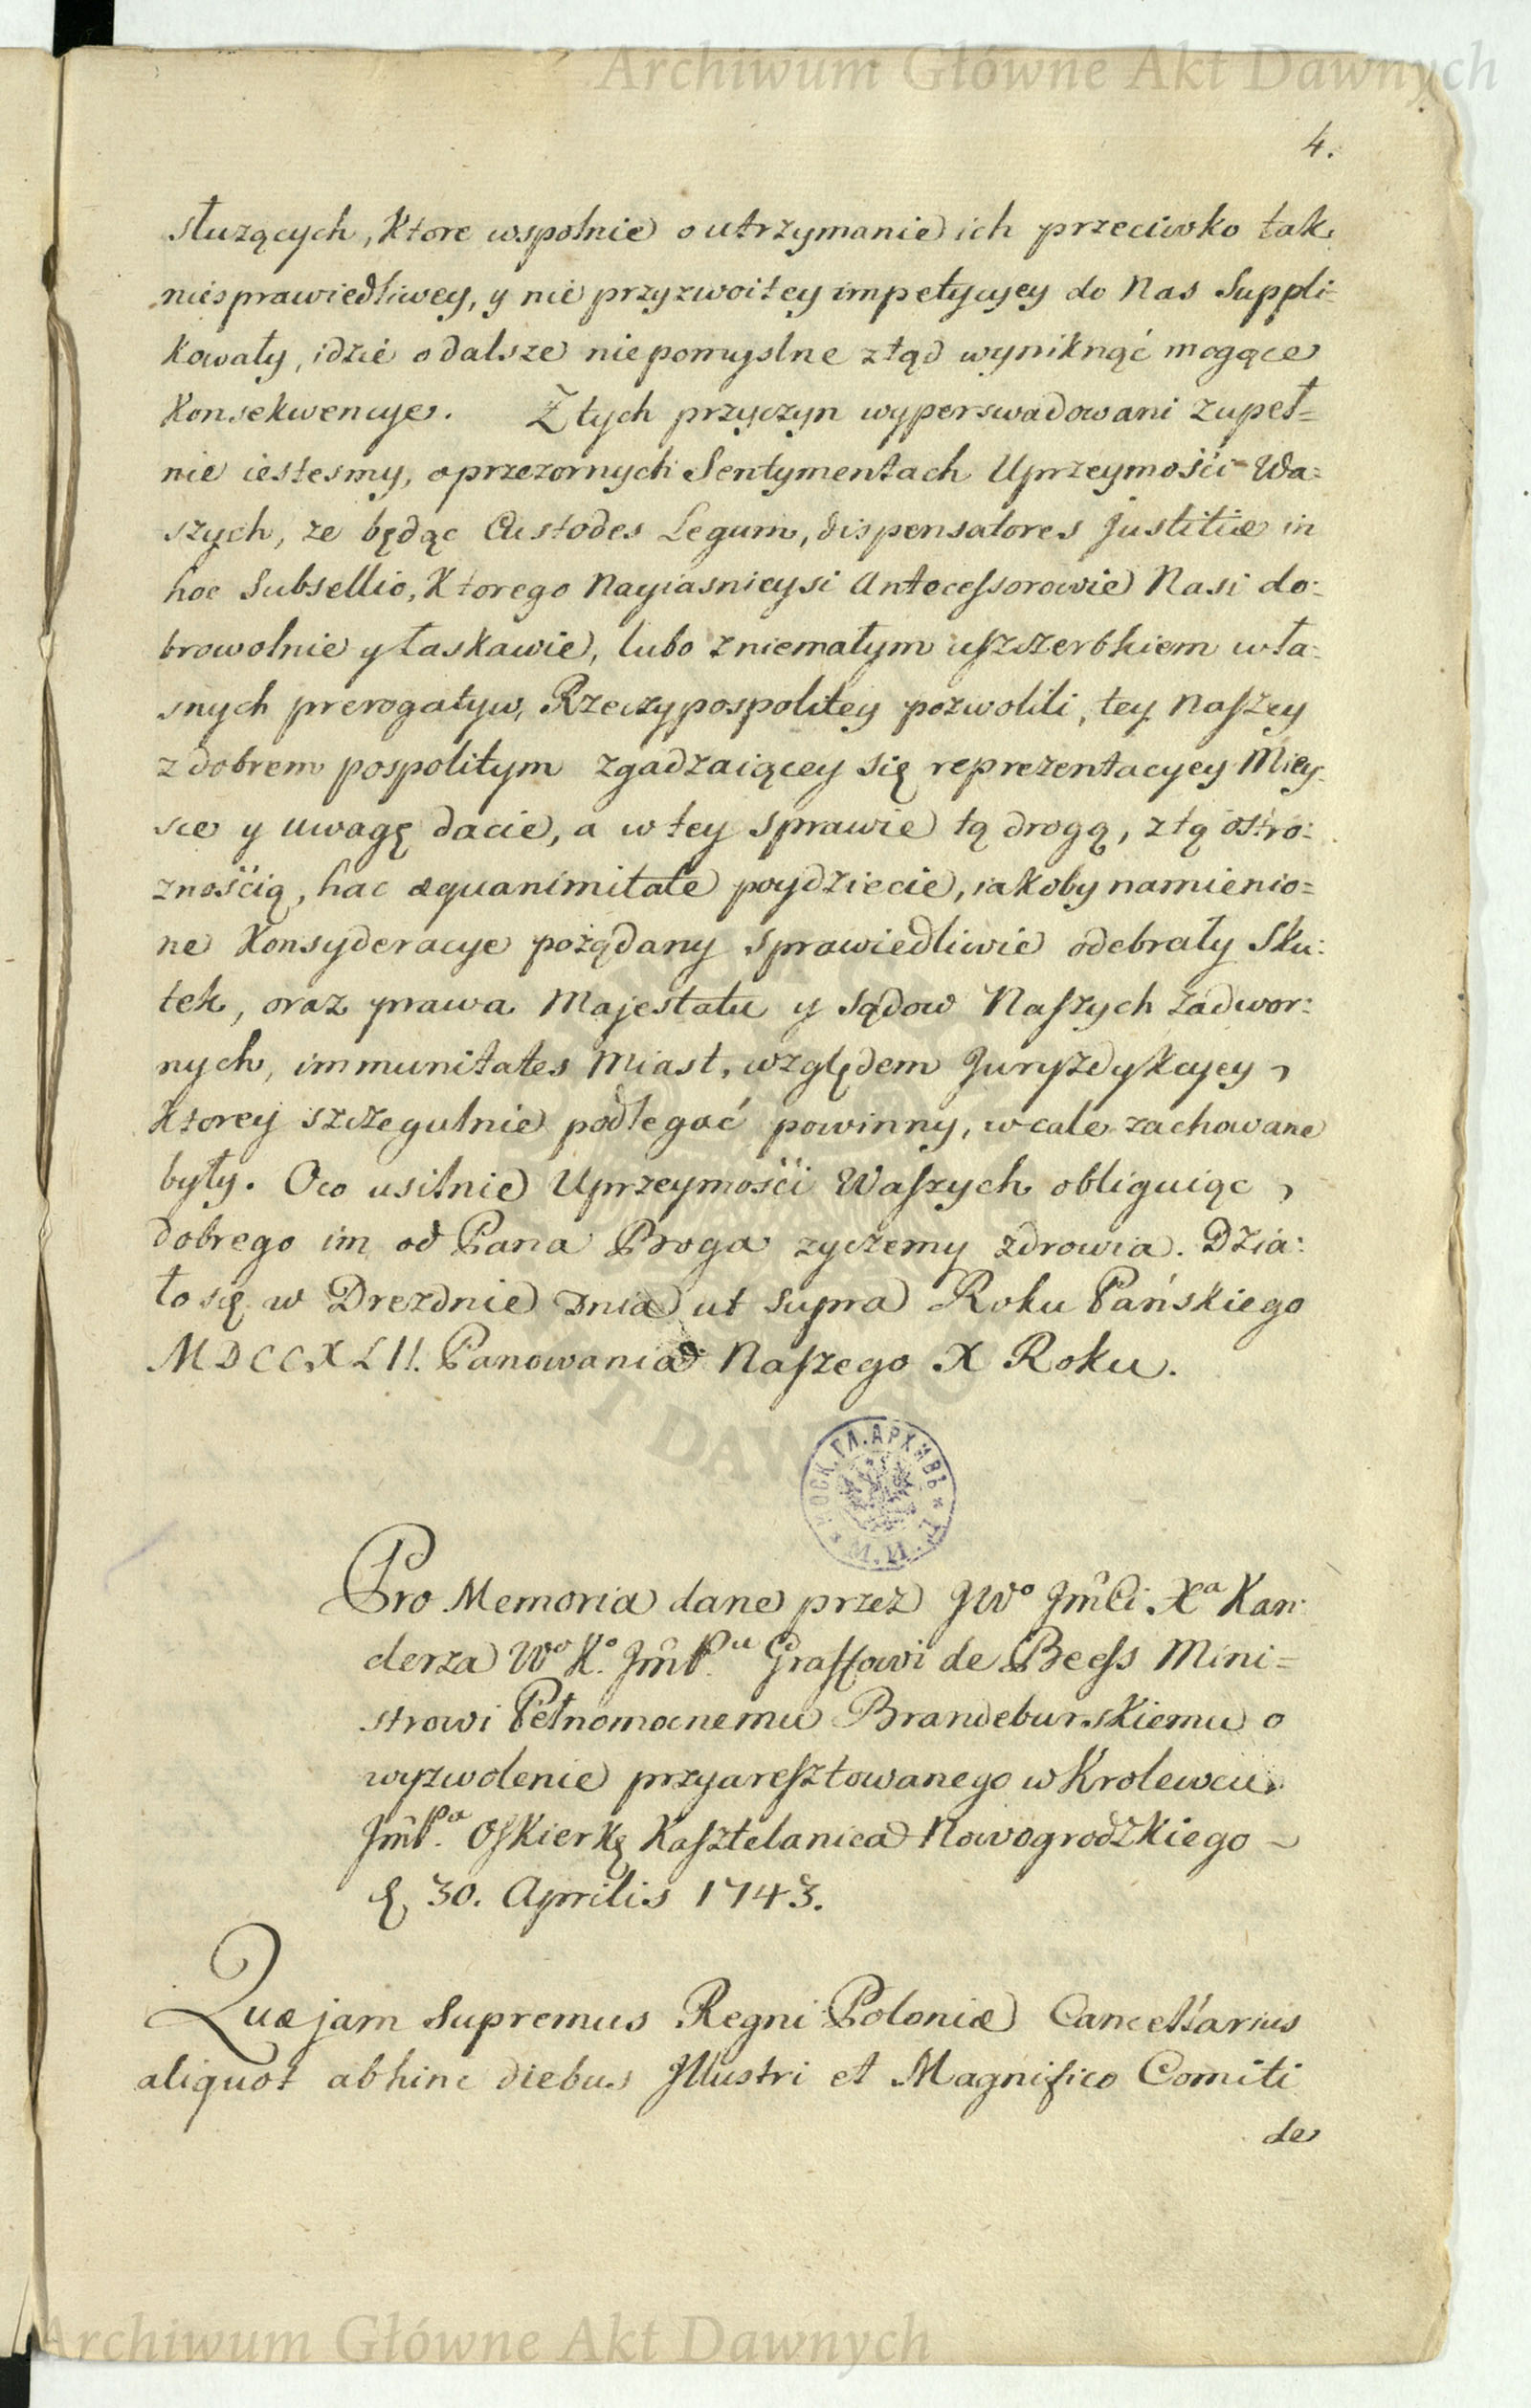 Archiwum Główne Akt Dawnych
4.
służących, Ktore wspolnie o utrzymanie ich przeciwko tak
niesprawiedliwey, y nie przyzwoitey impetycyey do Nas Suppli=
kowały, idzie o dalsze niepomyslne ztąd wyniknąć mogące
Konsekwencye. Z tych przyczyn wyperswadowani zupeł=
nie iestesmy, o przezornych Sentymentach Uprzeymości Wa=
szych, ze będąc Custodes Legum, dispensatores Justitiæ in
hoc Subsellio, Ktorego Nayiasnieysi Antecessorowie Nasi do=
browolnie y łaskawie, lubo z niemałym uszszerbkiem wła=
snych prerogatyw, Rzeczypospolitey pozwolili, tey Naszey
z dobrem pospolitym zgadzaiącey się reprezentacyey Miey=
sce y uwagę dacie, a w tey sprawie tą drogą, z tą ostro=
żnością, hac æquanimitate poydziecie, iakoby namienio=
ne Konsyderacye pożądany sprawiedliwie odebrały Sku=
tek, oraz prawa Majestatu y Sądow Naszych Zadwor=
nych, immunitates Miast, względem Juryzdykcyey,
Ktorey szczegulnie podlegać powinny, w cale zachowane
były. Oco usilnie Uprzeymości Waszych obliguiąc,
dobrego im od Pana Boga zyczemy zdrowia. Dzia=
ło się w Dreznie Dnia ut supra Roku Pańskiego
MDCCXLII. Panowania Naszego X Roku.
МОСК. ГЛ. АРХИВЪ * М. И. Д. *
Pro Memoria dane przez JWo Jmći Xa Kan=
clerza Wo Ko. JmPu Graffowi de Beess Mini=
strowi Pełnomocnemu Brandeburskiemu o
wyzwolenie przyaresztowanego w Krolewcu
JmPa. Oskierkę Kasztelanica Nowogrodzkiego
d. 30. Aprilis 1743.
Quæ jam Supremus Regni Poloniæ Cancellarius
aliquot abhinc diebus Illustri et Magnifico Comiti
de
Archiwum Główne Akt Dawnych